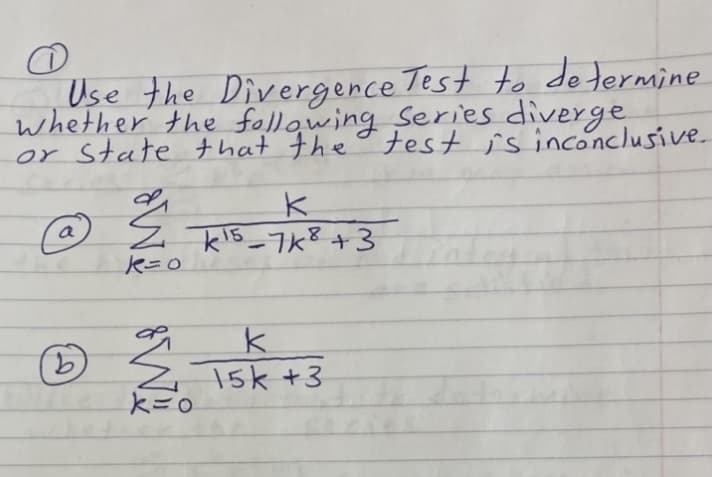 ①
Use the Divergence Test to determine
whether the following series diverge
or state that the test is inconclusive.
ⓐ ∞ Σ k=0 k / (k¹⁵ - 7k⁸ + 3)
ⓑ ∞ Σ k=0 k / (15k + 3)